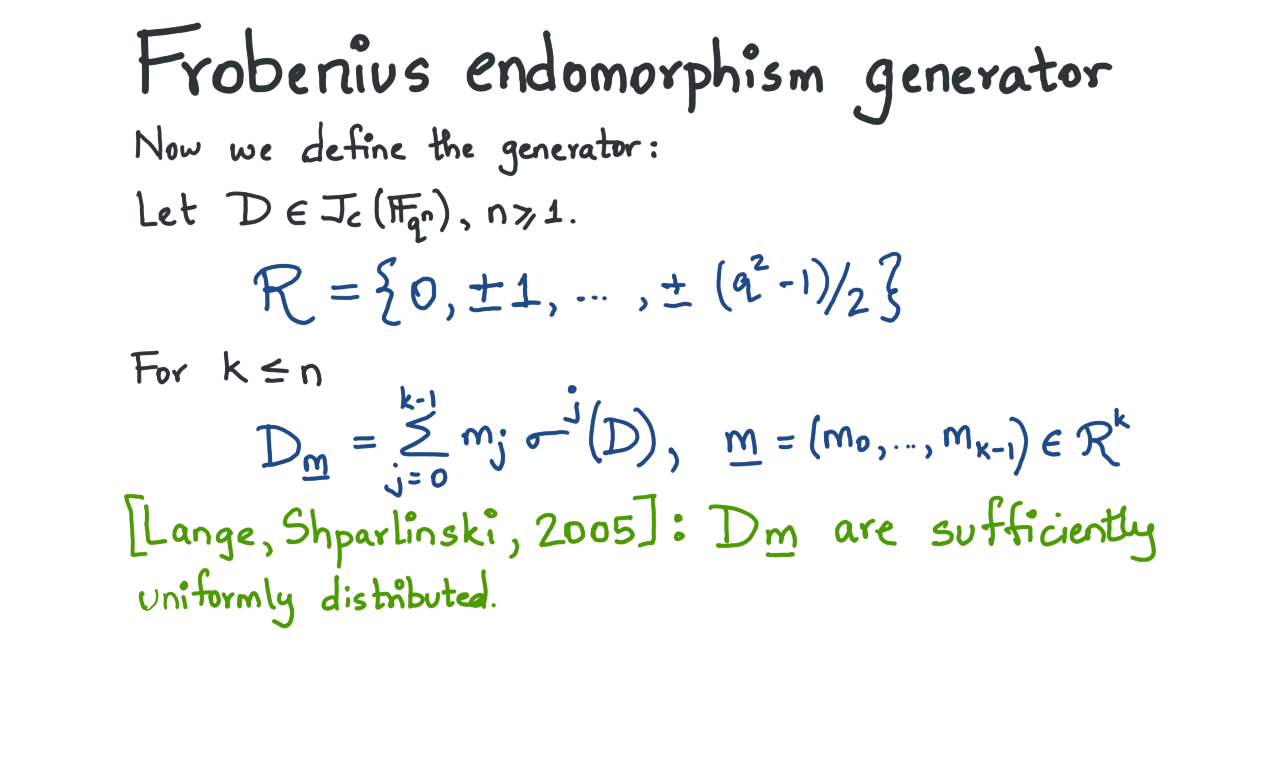 Frobenius endomorphism generator
Now we define the generator:
Let D ∈ J_C(𝔽_{qⁿ}), n ⩾ 1.
R = {0, ±1, ..., ± (q²-1)/2}
For k ≤ n
D_m̲ = ∑_{j=0}^{k-1} m_j σ^j(D), m̲ = (m₀, ..., m_{k-1}) ∈ R^k
[Lange, Shparlinski, 2005]: D_m̲ are sufficiently
uniformly distributed.